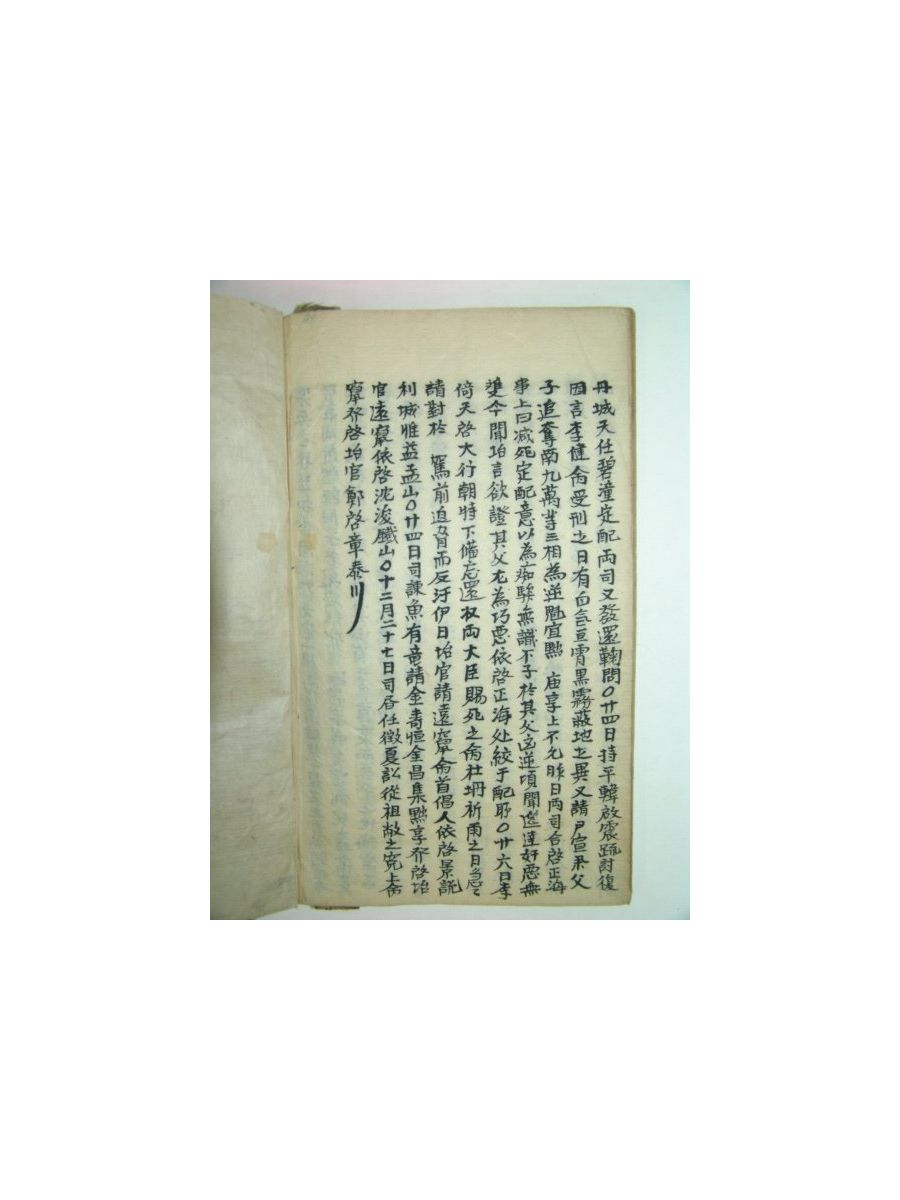 丹城天任碧潼定配両司又發還鞠問〇廿四日持平韓啟震疏討復
因言李健命受刑之日有白氣亘霄黒霧蔽地之異又請尹宣來父
子追奪南九萬等三相為逆魁宜黜 庙享上不允昨日両司合啓正海
事上曰减死定配意以為痴騃無識不子於其父凶逆項聞選達好悪無
雙今聞坮言欲證其父尤為巧悪依啓正海处絞于配所〇廿六日李
倚天啓大行朝特下備忘還収両大臣賜死之命社坍祈雨之日
請對於 駕前迫脅而反汗伊日坮官請遠竄命首倡人依啓景說
利城惟益孟山〇廿四日司諫魚有竜請金壽恒金昌集黜享郑啓坮
官遠竄依啓沈浚鐵山〇十二月二十七日司啓任徵夏訟從祖敞之寃上命
竄郑啓坮官鄭啓章泰川